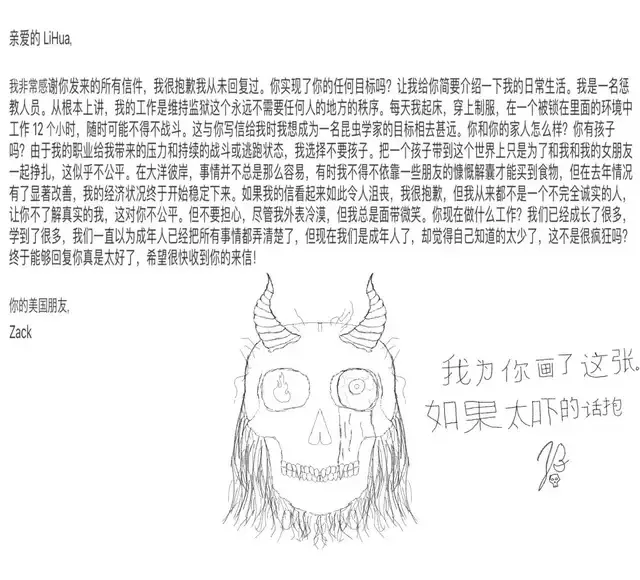 亲爱的 LiHua,
我非常感谢你发来的所有信件，我很抱歉我从未回复过。你实现了你的任何目标吗？让我给你简要介绍一下我的日常生活。我是一名惩
教人员。从根本上讲，我的工作是维持监狱这个永远不需要任何人的地方的秩序。每天我起床，穿上制服，在一个被锁在里面的环境中
工作 12 个小时，随时可能不得不战斗。这与你写信给我时我想成为一名昆虫学家的目标相去甚远。你和你的家人怎么样？你有孩子
吗？由于我的职业给我带来的压力和持续的战斗或逃跑状态，我选择不要孩子。把一个孩子带到这个世界上只是为了和我和我的女朋友
一起挣扎，这似乎不公平。在大洋彼岸，事情并不总是那么容易，有时我不得不依靠一些朋友的慷慨解囊才能买到食物，但在去年情况
有了显著改善，我的经济状况终于开始稳定下来。如果我的信看起来如此令人沮丧，我很抱歉，但我从来都不是一个不完全诚实的人，
让你不了解真实的我，这对你不公平。但不要担心，尽管我外表冷漠，但我总是面带微笑。你现在做什么工作？我们已经成长了很多，
学到了很多，我们一直以为成年人已经把所有事情都弄清楚了，但现在我们是成年人了，却觉得自己知道的太少了，这不是很疯狂吗？
终于能够回复你真是太好了，希望很快收到你的来信！
你的美国朋友,
Zack
我为你画了这张。
如果太吓的话抱